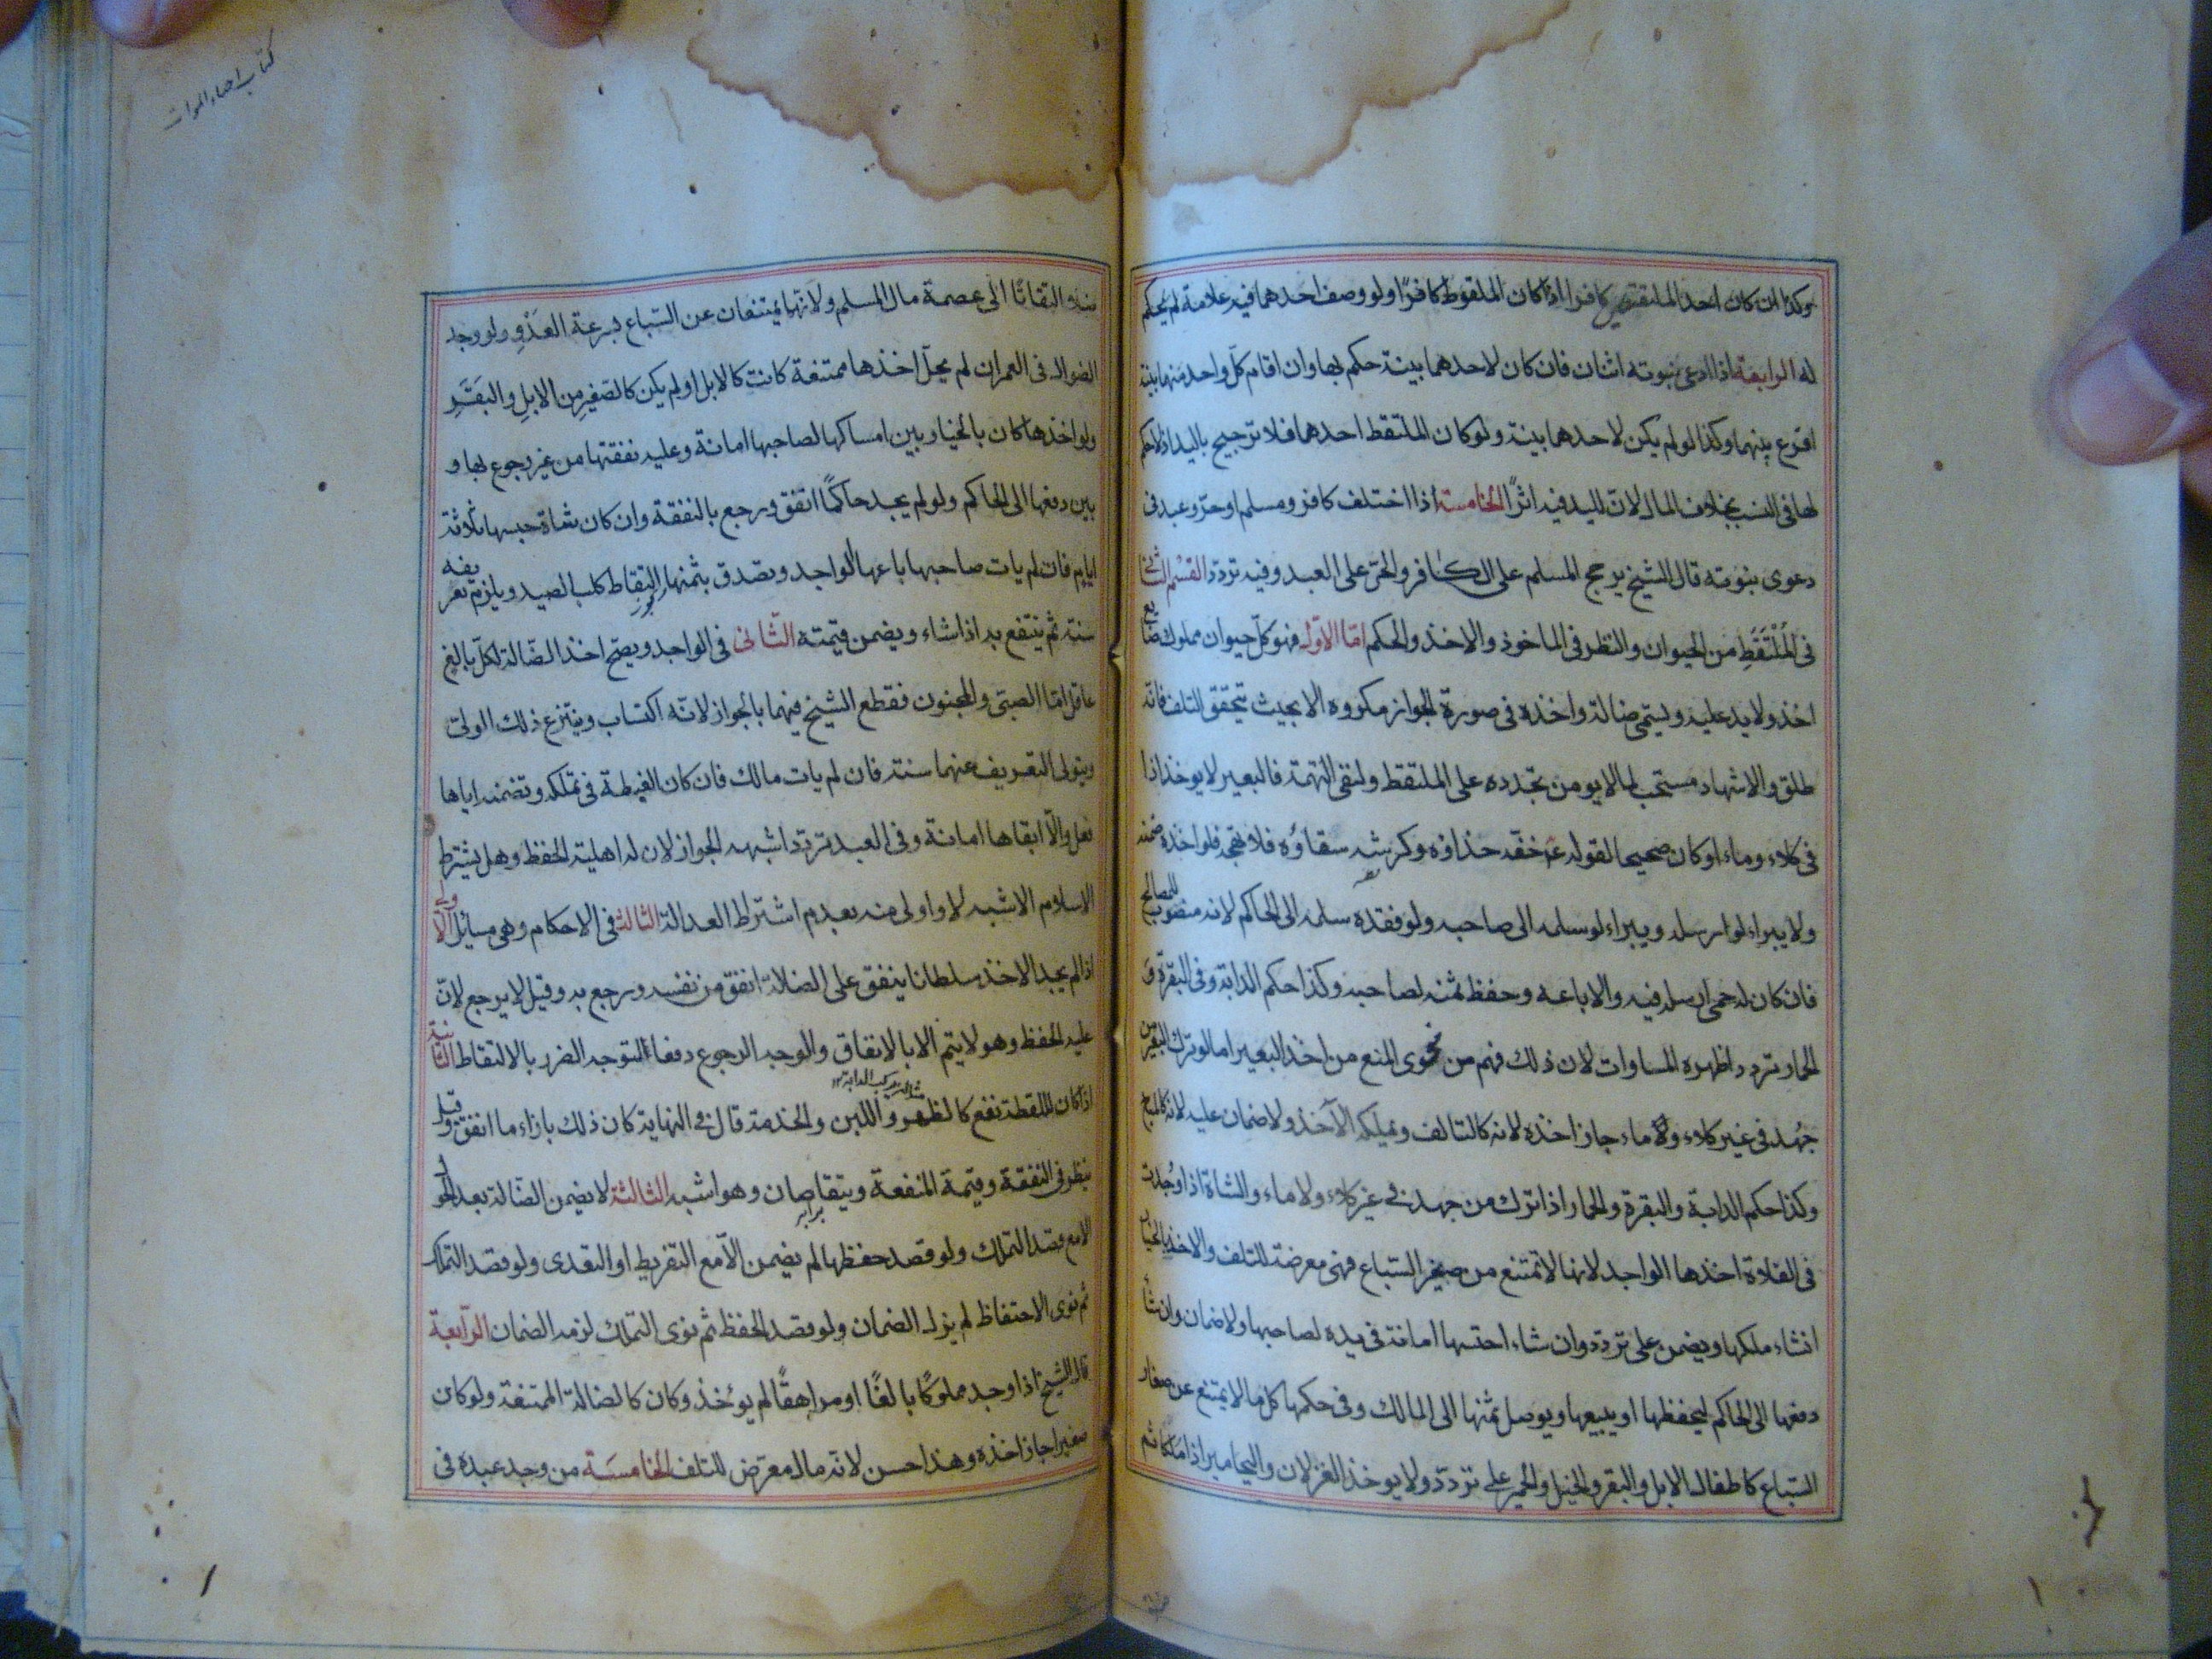 وكذا ان كان احد الملتقطين كافرا اذا كان الملقوط كافرًا ولو وصف احدهما فيه علامة لم يحكم
له الرابعة اذا ادعى بنوته اثنان فان كان لاحدهما بينة حكم بها وان اقام كلّ واحد منهما بينة
اقرع بينهما وكذا لو لم يكن لاحدهما بينة ولو كان الملتقط احدهما فلا ترجيح باليد اذ لا حكم
لها فى النسب بخلاف المال لانّ لليد فيه اثرًا الخامسة اذا اختلف كافر ومسلم او حرّ وعبد فى
دعوى بنوته قال الشيخ يرجح المسلم على الكافر والحر على العبد وفيه تردد القسم الثانى
فى المُلتَقَطِ من الحيوان والنظر فى الماخوذ والاخذ والحكم امّا الاوّل فهو كلّ حيوان مملوك ضايع
اخذ ولا يد عليه ويسمى ضالة واخذه فى صورة الجواز مكروه الا بحيث يتحقق التلف فانّه
طلق والاشهاد مستحب لما لا يومن تجدده على الملتقط ولنفى التهمة فالبعير لا يوخذ اذا
فى كلاء وماء او كان صحيحا لقوله ع خفّه حذاؤه وكرشه سقاؤه فلا تهجه فلو اخذه ضمنه
ولا يبراء لو ارسله ويبراء لو سلمه الى صاحبه ولو فقده سلمه الى الحاكم لانه منصوب للمصالح
فان كان له حمى ارسله فيه والا باعه وحفظ ثمنه لصاحبه وكذا حكم الدابة وفى البقرة و
الحمار تردد اظهره المساوات لان ذلك فهم من فحوى المنع من اخذ البعير اما لو ترك البعير من
جهد فى غير كلاء ولا ماء جاز اخذه لانه كالتالف ويملكه الآخذ ولا ضمان عليه لانه كالمباح
وكذا حكم الدابة والبقرة والحمار اذا ترك من جهد فى غير كلاء ولا ماء والشاة اذا وُجدت
فى الفلاة اخذها الواجد لانها لا تمتنع من صغير السّباع فهى معرضة للتلف والاخذ بالخيار
انشاء ملكها ويضمن على تردّد وان شاء احتبسها امانة فى يده لصاحبها ولا ضمان وان شأ
دفعها الى الحاكم ليحفظها او يبيعها ويوصل ثمنها الى المالك وفى حكمها كل ما لا يمتنع عن صغار
السّباع كاطفال الابل والبقر والخيل والحمير على تردّد ولا يوخذ الغزلان واليحامير اذا ملكا ثم
ضلا التفاتًا الى عصمة مال المسلم ولانّهما يمتنعان عن السّباع بسرعة العَدْوِ ولو وجد
الضوال فى العمران لم يحلّ اخذها ممتنعة كانت كالابل او لم يكن كالصّغير من الابلِ والبَقَرِ
ولو اخذها كان بالخيار بين امساكها لصاحبها امانة وعليه نفقتها من غير رجوع بها و
بين دفعها الى الحاكم ولو لم يجد حاكمًا انفق ورجع بالنفقة وان كان شاة حبسها ثلاثة
ايام فان لم يات صاحبها باعها الواجد وتصدق بثمنها ويجوز التقاط كلب الصيد ويلزم تعريفه
سنة ثم ينتفع به اذا شاء ويضمن قيمته الثّانى فى الواجد ويصحّ اخذ الضّالة لكلّ بالغ
عاقل امّا الصبىّ والمجنون فقطع الشيخ فيهما بالجواز لانّه اكتساب وينتزع ذلك الولىّ
ويتولى التعريف عنهما سنة فان لم يات مالك فان كان الغبطة فى تملّكه وتضمنه اياها
فعل والّا ابقاها امانة وفى العبد تردّد اشبهه الجواز لان له اهلية الحفظ وهل يشترط
الاسلام الاشبه لا واولى منه بعدم اشتراط العدالة الثالث فى الاحكام وهى مسائل الاولى
اذا لم يجد الاخذ سلطانا ينفق على الضالّة انفق من نفسه ورجع به وقيل لا يرجع لانّ
عليه الحفظ وهو لا يتمّ الا بالانفاق والوجه الرجوع دفعا لتوجه الضرر بالالتقاط الثانية
اذا كان للقطة نفع كالظهر واللبن والخدمة قال فى النهاية كان ذلك بازاء ما انفق وقيل
ينظر فى النفقة وقيمة المنفعة ويتقاصان وهو اشبه الثالثة لا يضمن الضّالة بعد الحول
برابر
الا مع قصد التملك ولو قصد حفظها لم يضمن الّا مع التفريط او التعدى ولو قصد التملك
ثم نوى الاحتفاظ لم يزل الضمان ولو قصد الحفظ ثم نوى التملك لزمه الضمان الرّابعة
قال الشيخ اذا وجد مملوكًا بالغًا او مراهقًا لم يوُخذ وكان كالضالة الممتنعة ولو كان
صغيرا جاز اخذه وهذا حسن لانّه مال معرّض للتلف الخامسَة من وجد عبده فى
كتاب احياء الموات